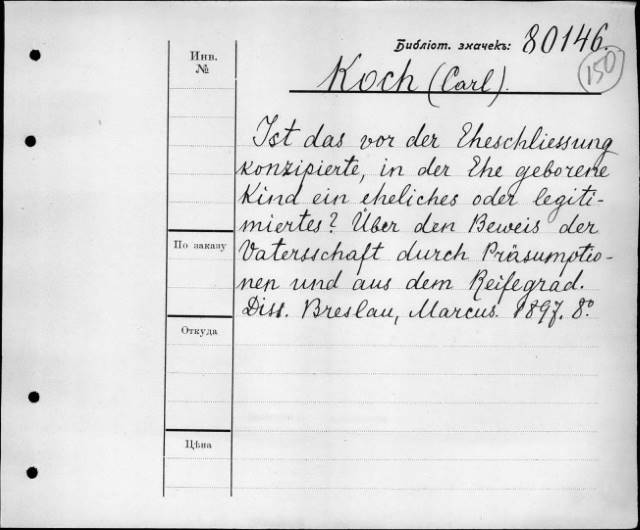 Библіот. значекъ: 80146.
150
Инв.
№
Koch (Carl).
Ist das vor der Eheschliessung
konzipierte, in der Ehe geborene
Kind ein eheliches oder legiti-
miertes? Über den Beweis der
Vatersschaft durch Präsumptio-
nen und aus dem Reifegrad.
Diss. Breslau, Marcus. 1897. 8º
По заказу
Откуда
Цѣна